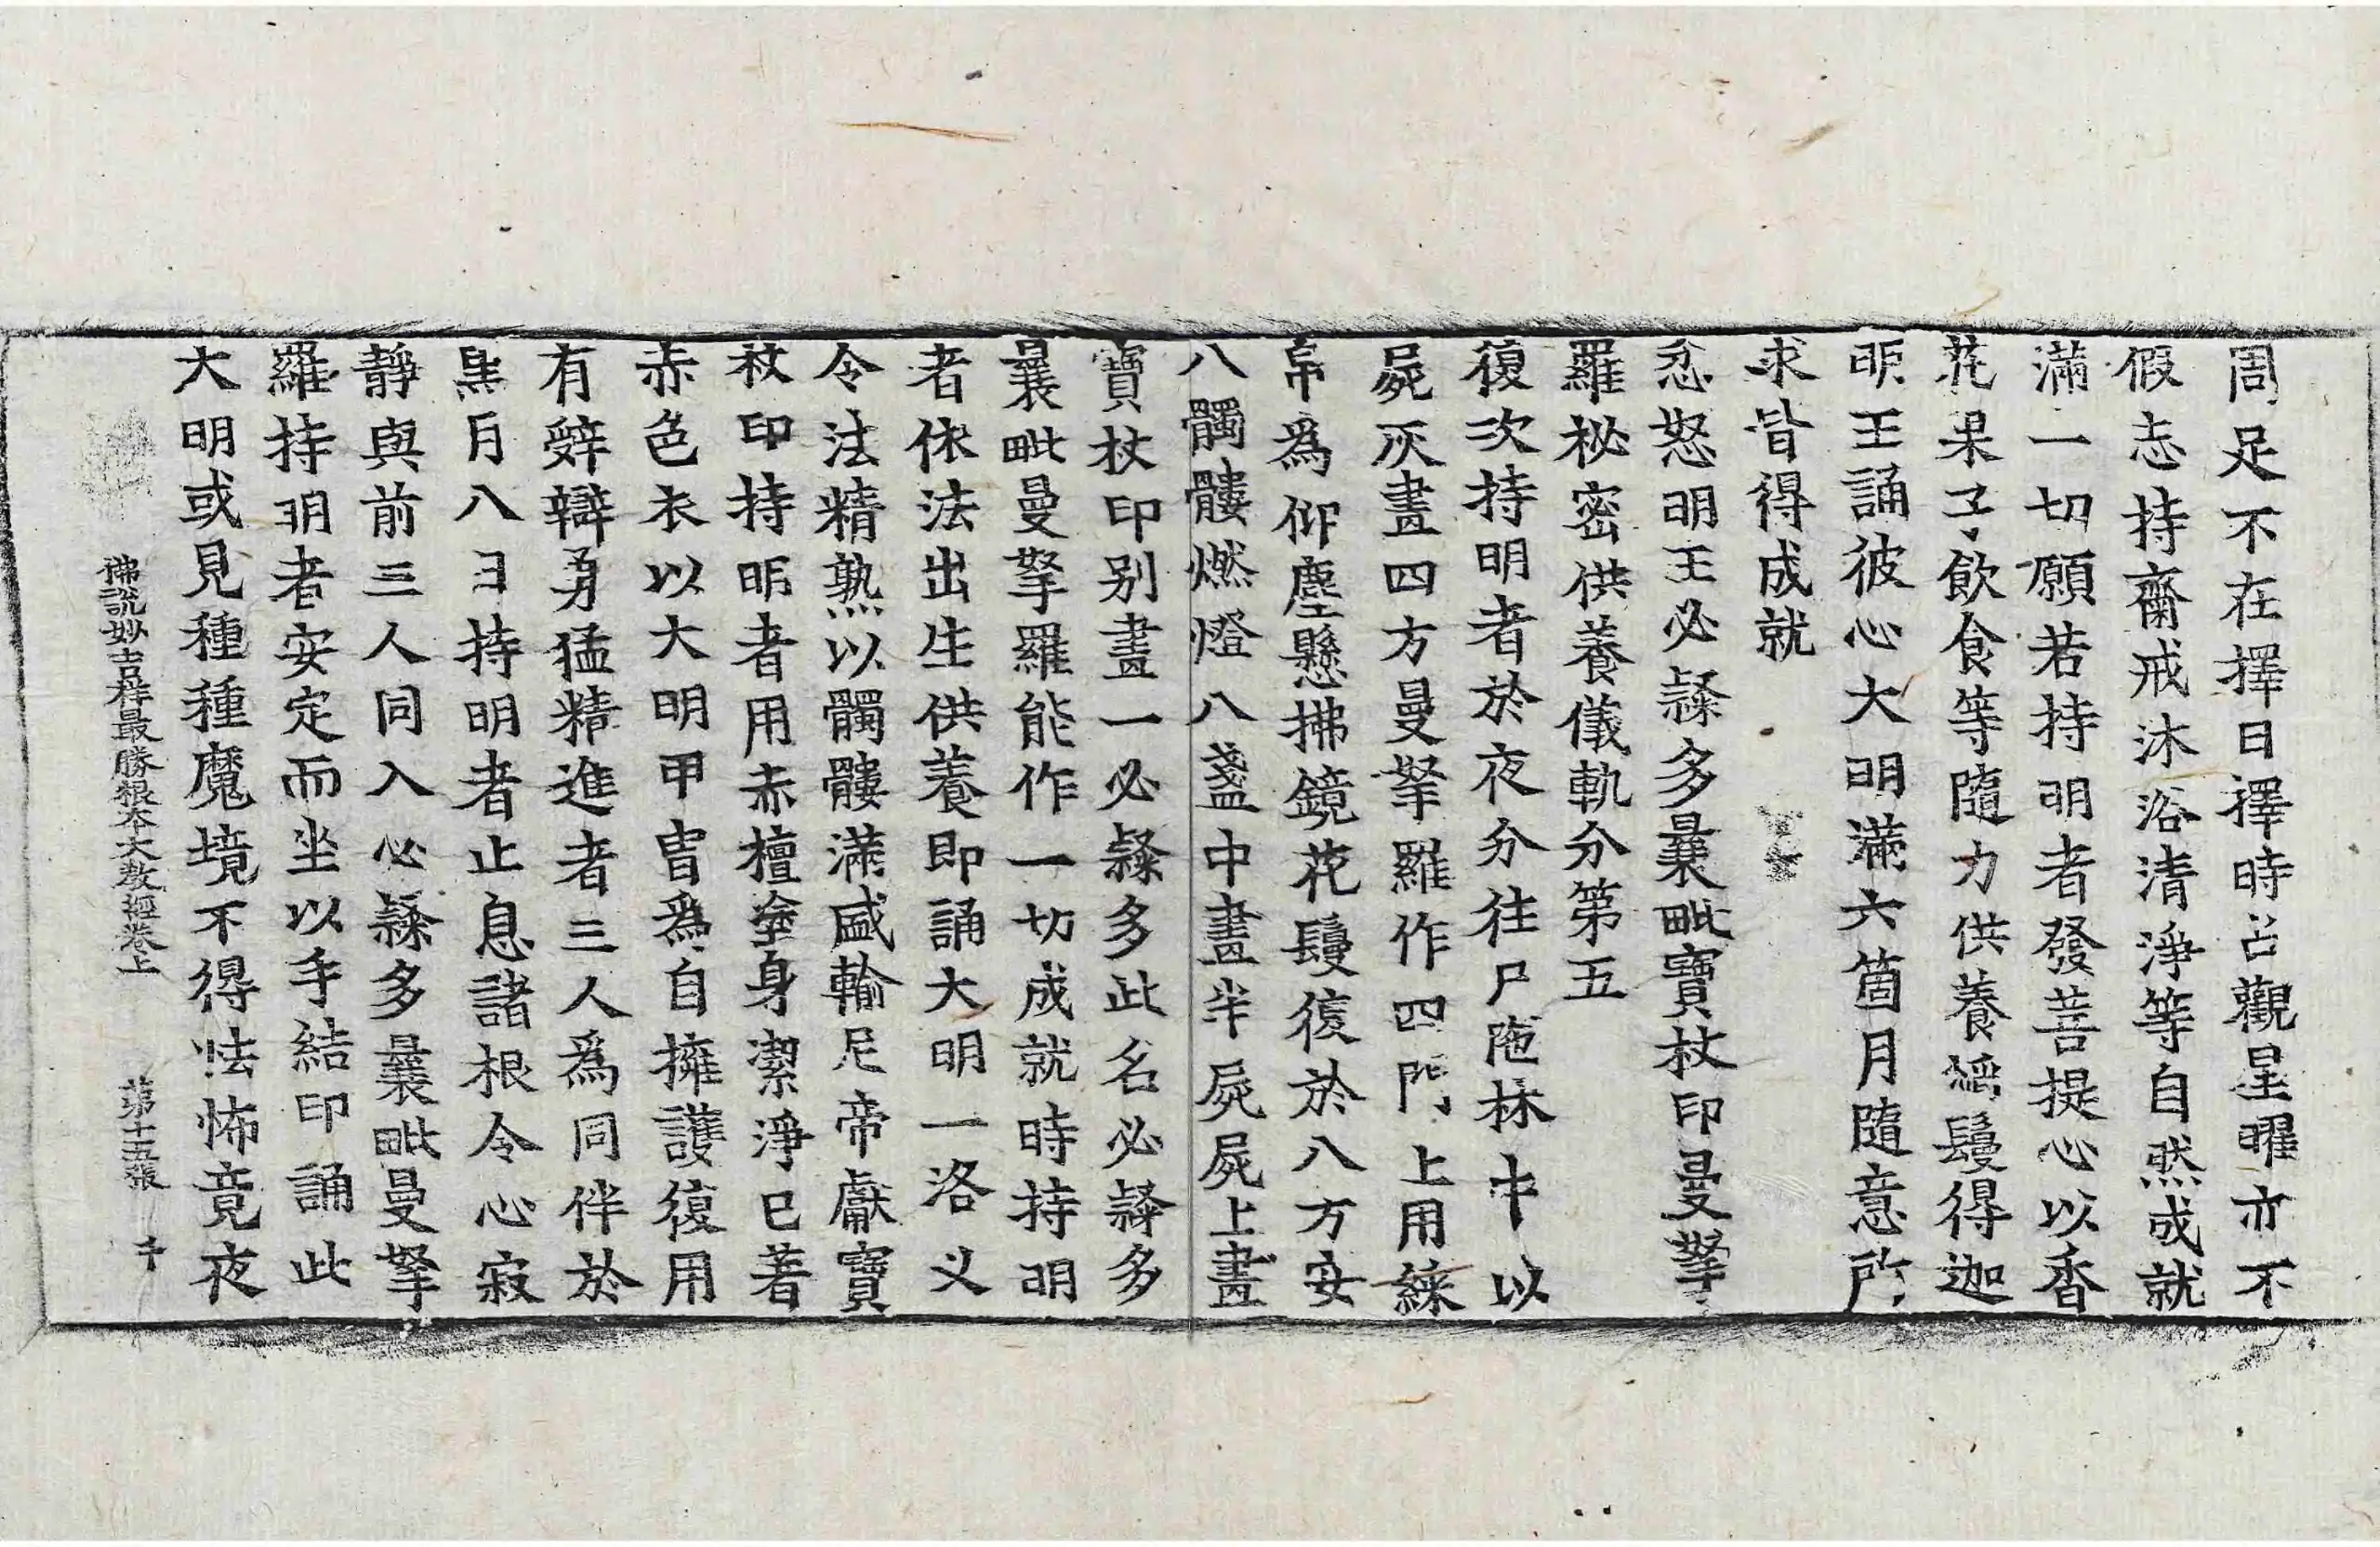 周足不在擇日擇時占觀星曜亦不
假志持齋戒沐浴清淨等自然成就
滿一切願若持明者發菩提心以香
花果子飲食等隨力供養焰鬘得迦
明王誦彼心大明滿六箇月隨意所
求皆得成就
忿怒明王必𨽾多曩毗寶杖印曼拏
羅秘密供養儀軌分第五
復次持明者於夜分往尸陁林中以
屍灰畫四方曼拏羅作四門上用綵
帛爲仰塵懸拂鏡花鬘復於八方安
八髑髏燃燈八盞中畫半屍屍上畫
寶杖印别畫一必𨽾多此名必𨽾多
曩毗曼拏羅能作一切成就時持明
者依法出生供養即誦大明一洛义
令法精熟以髑髏滿盛輸尼帝獻寶
杖印持明者用赤檀塗身潔淨已著
赤色衣以大明甲胄爲自擁護復用
有辤辯勇猛精進者三人爲同伴於
黑月八日持明者止息諸根令心寂
靜與前三人同入必𨽾多曩毗曼拏
羅持明者安定而坐以手結印誦此
大明或見種種魔境不得怯怖竟夜
佛說妙吉祥最勝根本大教經卷上 第十五張 千